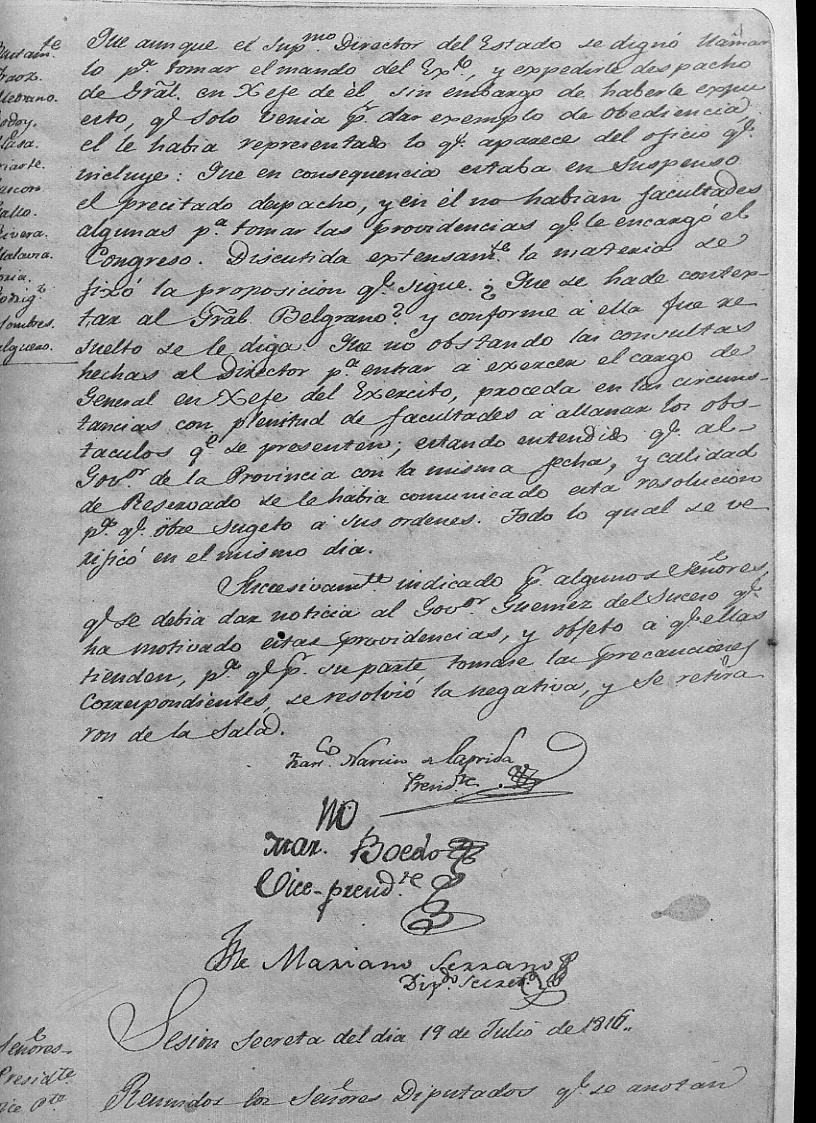 Que aunque el Sup.mo Director del Estado se dignó llamar
lo p.a tomar el mando del Ex.to, y expedirle despacho
de Gral. en Xefe de él sin embargo de haberle expu
esto, q.e solo venia p.r dar exemplo de obediencia,
el le habia representado lo q.e aparece del oficio q.e
incluye: Que en consecuencia estaba en suspenso
el precitado despacho, y en él no habian facultades
algunas p.a tomar las providencias q.e le encargó el
Congreso. Discutida extensam.te la materia se
fixó la proposicion q.e sigue. ¿Que se hade contex-
tar al Gral. Belgrano? y conforme á ella fue re
suelto se le diga. Que no obstando las consultas
hechas al Director p.a entrar á exercer el cargo de
General en Xefe del Exercito, proceda en las circuns-
tancias con plenitud de facultades a allanar los obs-
taculos q.e se presenten; estando entendido q.e al
Gov.or de la Provincia con la misma fecha, y calidad
de Reservado se le habia comunicado esta resolucion
p.a q.e obre sugeto á sus ordenes. Todo lo qual se ve
rificó en el mismo dia.
Succesivam.te indicado p.r algunos Señores,
q.e se debia dar noticia al Gov.or Guemez del Suceso q.e
ha motivado estas providencias, y objeto a q.e ellas
tienden, p.a q.e p.r su parte tomase las precauciones
correspondientes, se resolvió la negativa, y se retira
ron de la Sala.
Fran.co Narciso de Laprida
Presid.te
Mar.no Boedo
Vice-presid.te
Jse Mariano Serrano
Dip.do Secret.o
Sesion Secreta del dia 19 de Julio de 1816.
Señores
Presid.te
Vice P.te
Reunidos los Señores Diputados q.e se anotan